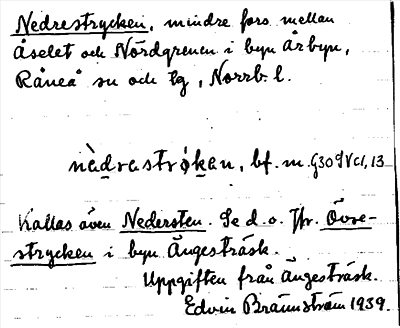 Nedrestrycken, mindre fors mellan
Åselet och Nördgrenen i byn Årbyn,
Råneå sn och tg, Norrb. l.
nèdrastrøkan, bf. m. G30 IV c1, 13
Kallas även Nedersten. Se d. o. Jfr. Övre-
strycken i byn Ängesträsk.
Uppgiften från Ängesträsk.
Edvin Brännström 1939.